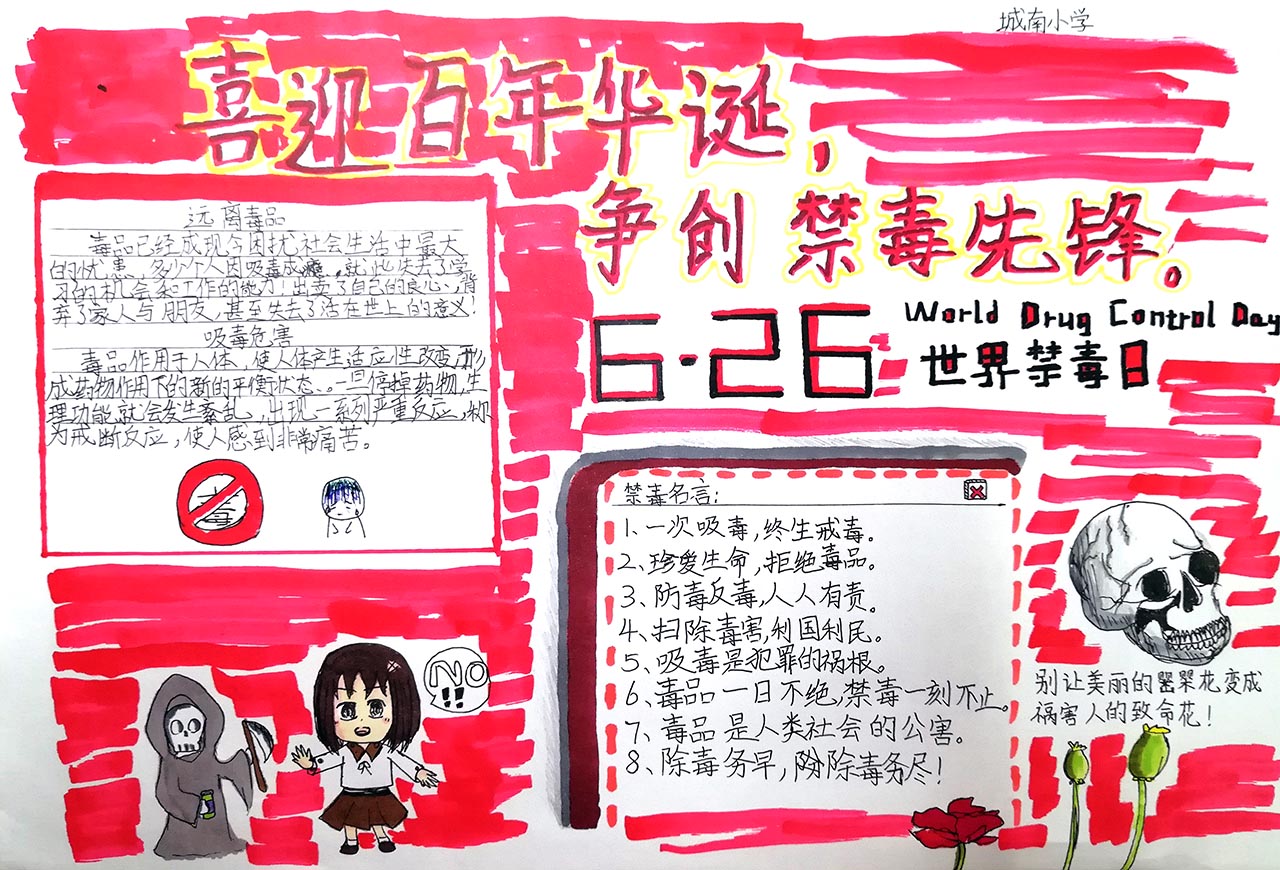 城南小学
喜迎百年华诞，
争创禁毒先锋。
6·26
World Drug Control Day
世界禁毒日
远离毒品
毒品已经成现今困扰社会生活中最大
的忧患，多少个人因吸毒成瘾，就此失去了学
习的机会和工作的能力！出卖了自己的良心，背
弃了家人与朋友，甚至失去了活在世上的意义！
吸毒危害
毒品作用于人体，使人体产生适应性改变，形
成药物作用下的新的平衡状态。一旦停掉药物，生
理功能就会发生紊乱，出现一系列严重反应，称
为戒断反应，使人感到非常痛苦。
毒
NO!!
禁毒名言：
1、一次吸毒，终生戒毒。
2、珍爱生命，拒绝毒品。
3、防毒反毒，人人有责。
4、扫除毒害，利国利民。
5、吸毒是犯罪的祸根。
6、毒品一日不绝，禁毒一刻不止。
7、毒品是人类社会的公害。
8、除毒务早，除毒务尽！
别让美丽的罂粟花变成
祸害人的致命花！